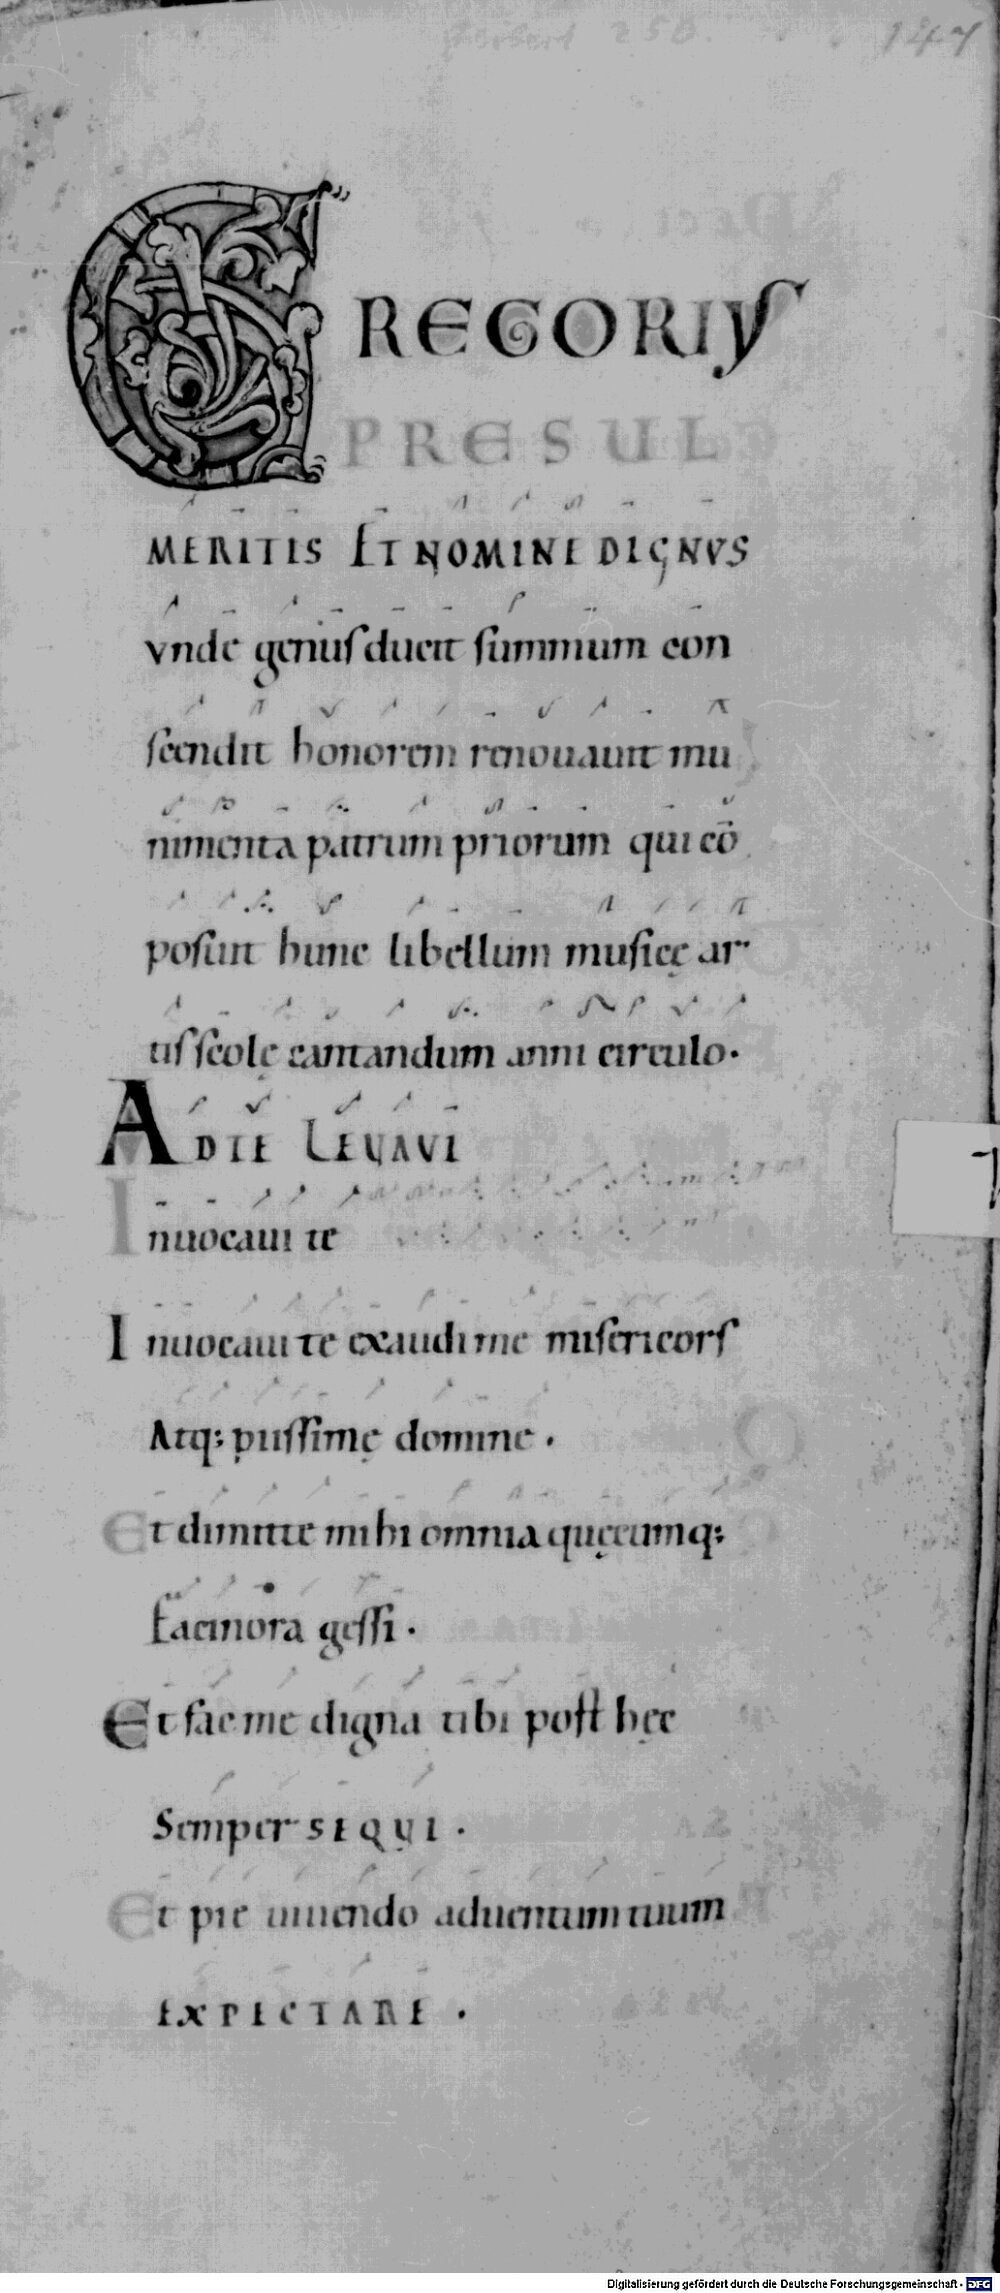 Gerbert 250. 147
GREGORIVS
PRESUL
MERITIS ET NOMINE DIGNVS
vnde genus ducit summum con
scendit honorem renouauit mu
nimenta patrum priorum qui cō
posuit hunc libellum musicę ar
tis scolę cantandum anni circulo.
AD TE LEVAVI
Inuocaui te
Inuocaui te exaudi me misericors
Atq; piissimę domine.
Et dimitte mihi omnia quęcumq;
facinora gessi.
Et fac me digna tibi post hęc
Semper SEQVI.
Et pie uiuendo aduentum tuum
EXPECTARE.
Digitalisierung gefördert durch die Deutsche Forschungsgemeinschaft - DFG